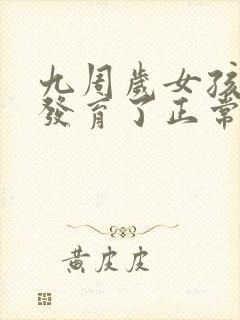 九周歲女孩
發育了正常
黃皮皮